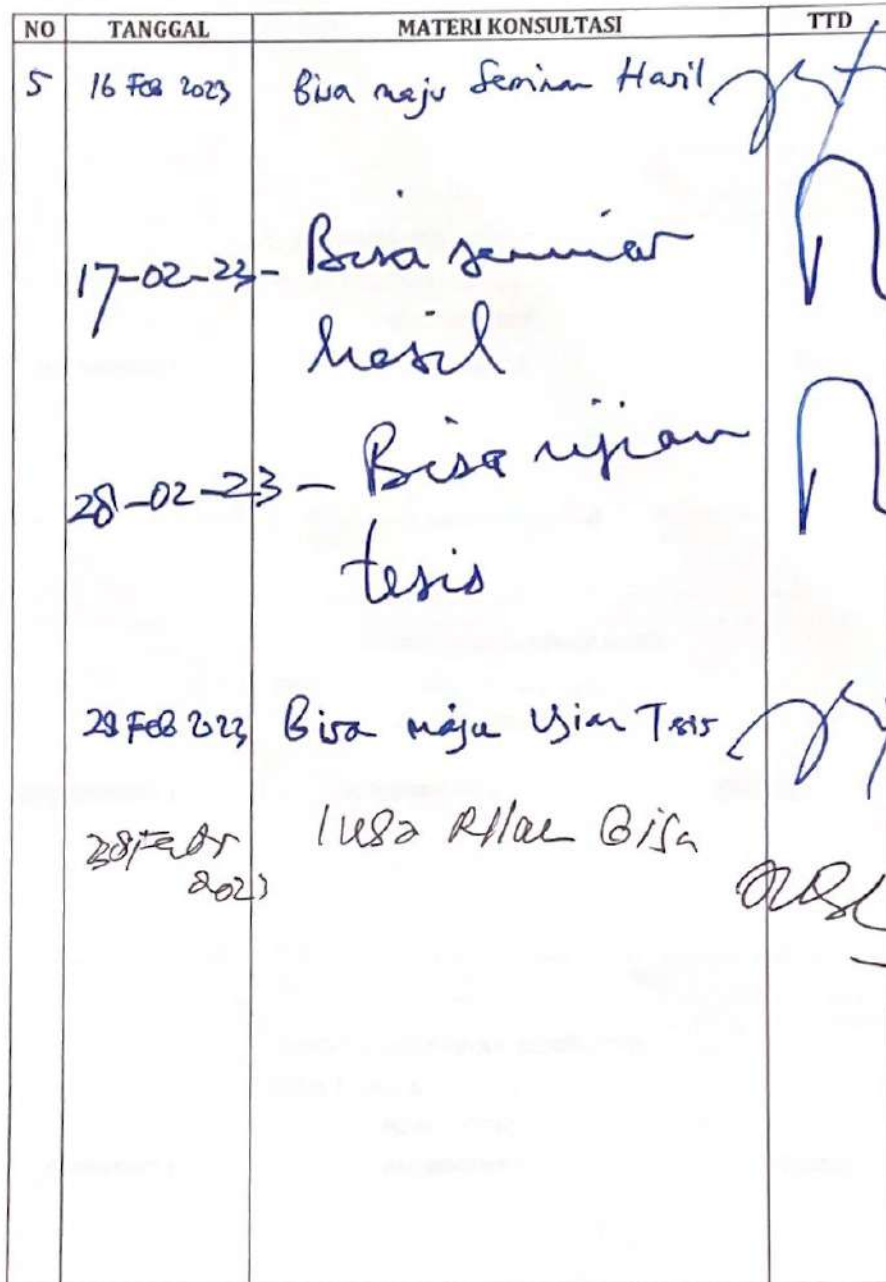 NO TANGGAL MATERI KONSULTASI TTD
5 16 Feb 2023 Bisa maju Seminar Hasil
17-02-23 - Bisa seminar
hasil
28-02-23 - Bisa ujian
tesis
Feb 2023 Bisa maju Ujian Tesis
28 Febr Bisa
2023